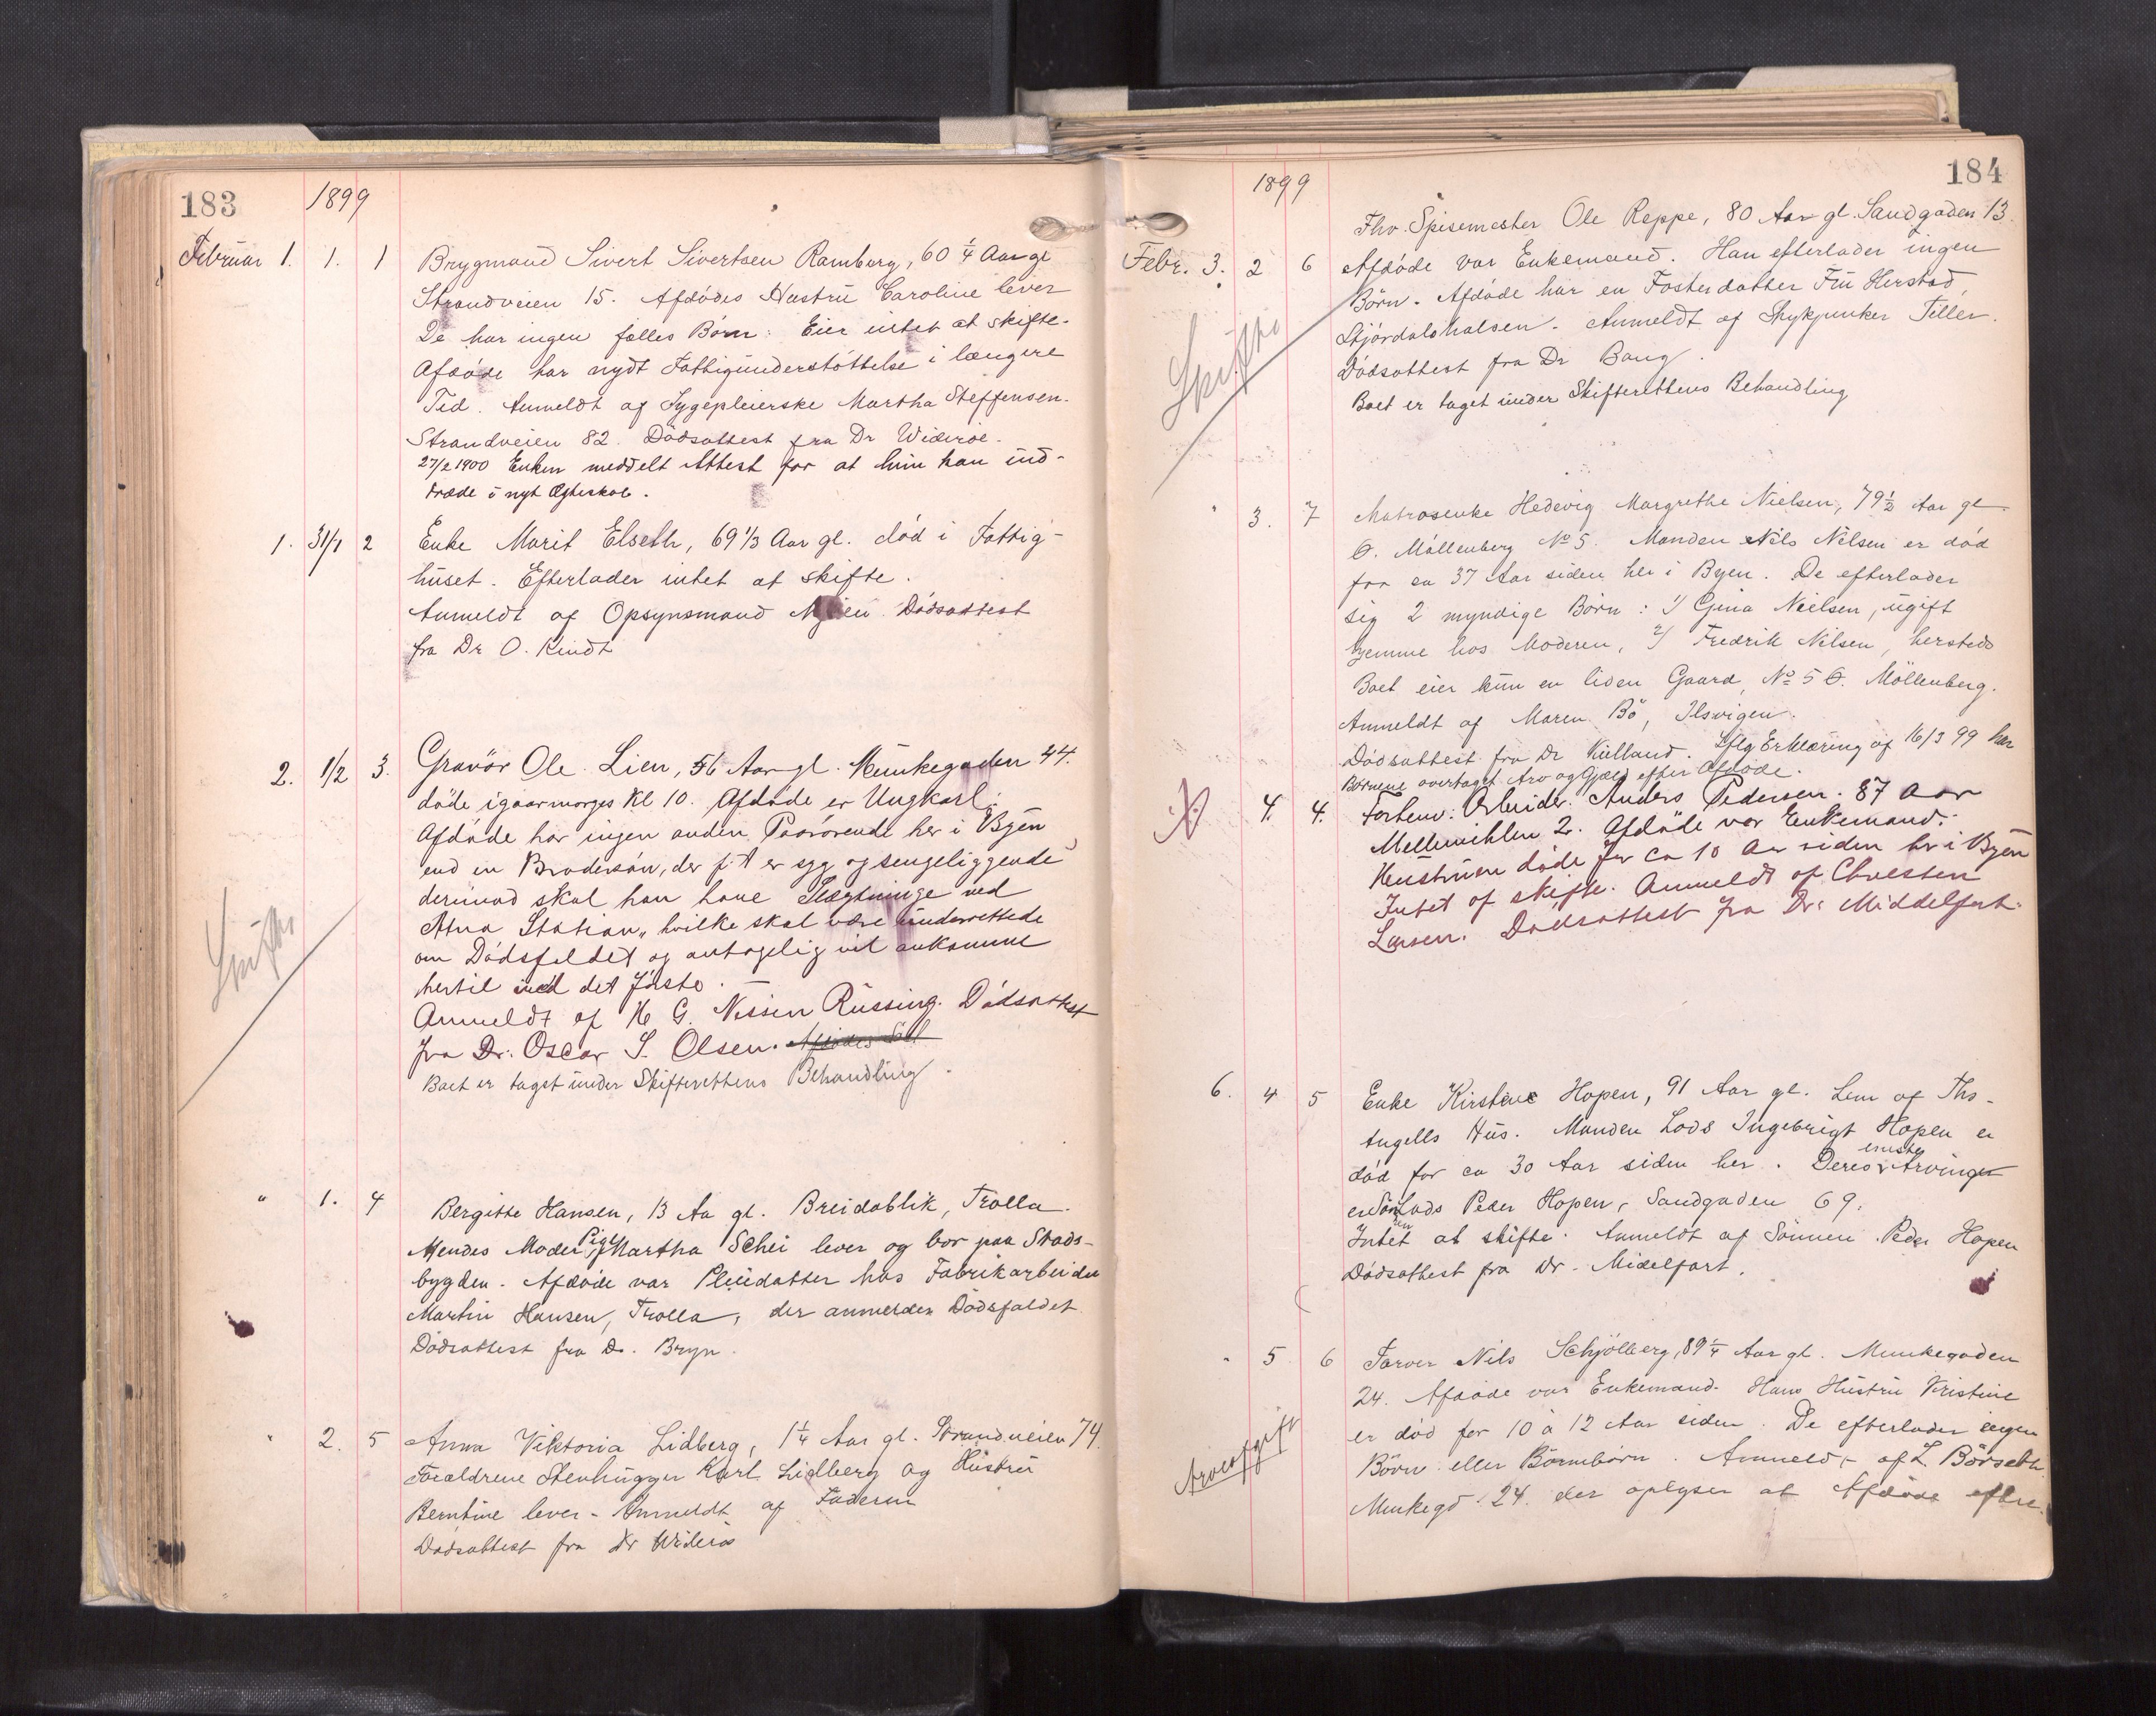 183
1899
Februar 1. 1. 1 Brygmand Sivert Sivertsen Ramberg, 60 1/4 Aar gl
Strandveien 15. Afdödes Hustru Caroline lever
De har ingen fælles Börn. Eier intet at skifte.
Afdöde har nydt Fattigunderstöttelse i længere
Tid. Anmeldt af Sygepleierske Martha Steffensen.
Strandveien 82. Dödsattest fra Dr Wideröe.
27/2 1900 Enken meddelt Attest for at hun kan ind-
træde i nyt Ægteskab.
1. 31/1 2 Enke Marit Elseth, 69 1/3 Aar gl. död i Fattig-
huset. Efterlader intet at skifte.
Anmeldt af Opsynsmand Dödsattest
fra Dr O. Kindt
2. 1/2 3. Gravör Ole Lien, 56 Aar gl. Munkegaden 44.
döde igaarmorges Kl 10. Afdöde er Ungkarl.
Afdöde har ingen anden Paarörende her i Byen
end en Brodersön, der p.t. er syg og sengeliggende
derimod skal han have Slægtninge ved
Atna Station, hvilke skal være underrettede
om Dödsfaldet og antagelig vil ankomme
hertil med det förste.
Anmeldt af H G. Nissen Rüssing. Dödsattest
fra Dr. Oscar S. Olsen. Afdödes
Boet er taget under Skifterettens Behandling.
Skifte
" 1. 4 Bergitte Hansen, 13 Aa gl. Breidablik, Trolla.
Hendes Moder Pige Martha Schei lever og bor paa Stads-
bygden. Afdöde var Pleiedatter hos Fabrikarbeider
Martin Hansen, Trolla, der anmelder Dödsfaldet
Dödsattest fra Dr. Bryn.
" 2. 5 Anna Viktoria Lidberg, 1 1/4 Aar gl. Strandveien 74.
Forældrene Stenhugger Karl Lidberg og Hustru
Berntine lever. Anmeldt af Faderen
Dödsattest fra Dr Wideröe
184
1899
Fhv. Spisemester Ole Reppe, 80 Aar gl. Sandgaden 13.
Febr. 3. 2 6 Afdöde var Enkemand. Han efterlader ingen
Börn. Afdöde har en Fosterdatter Fru Herstad,
Stjördalshalsen. Anmeldt af Tiller.
Dödsattest fra Dr Bang.
Boet er taget under Skifterettens Behandling
Skifte
" 3. 7 Matrosenke Hedevig Margrethe Nielsen, 79 1/2 Aar gl.
Ö. Möllenberg No 5. Manden Nils Nilsen er död
for ca 37 Aar siden her i Byen. De efterlader
sig 2 myndige Börn: 1/ Gina Nielsen, ugift
hjemme hos Moderen, 2/ Fredrik Nilsen, hersteds
Boet eier kun en liden Gaard, No 5 Ö. Möllenberg.
Anmeldt af Maren Bö, Ilsvigen.
Dödsattest fra Dr Kielland. Iflg Erklæring af 16/3 99 har
Börnene overtaget Arv og Gjæld efter Afdöde.
4. 4. Forhenv: Arbeider. Anders Pedersen. 87 Aar
Mellemiblen 2. Afdöde var Enkemand.
Hustruen döde for ca 10 Aar siden her i Byen
Intet at skifte. Anmeldt af Chresten
Larsen. Dödsattest fra Dr. Middelfart.
6. 4 5 Enke Kirstine Hopen, 91 Aar gl. Lem af Ths.
Angells Hus. Manden Lods Ingebrigt Hopen er
död for ca 30 Aar siden her. Deres eneste Arvinger
er Sön Lods Peder Hopen, Sandgaden 69.
Intet at skifte. Anmeldt af Sönnen Peder Hopen
Dödsattest fra Dr. Midelfart.
" 5 6 Farver Nils Schjölberg, 89 1/4 Aar gl. Munkegaden
24. Afdöde var Enkemand. Hans Hustru Kristine
er död for 10 à 12 Aar siden. De efterlader ingen
Börn eller Börnebörn. Anmeldt af L. Börseth
Munkegd. 24. der oplyser at Afdöde efter
Arveafgift